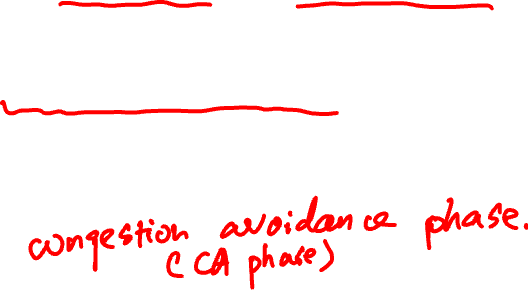 congestion avoidance phase.
(CA phase)